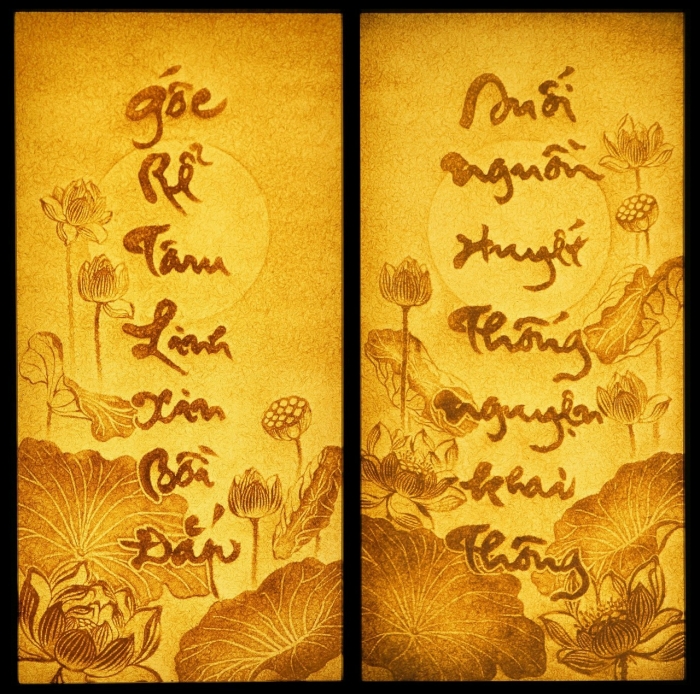 Gốc
Rễ
Tâm
Linh
Xin
Bồi
Đắp
Suối
nguồn
Huyết
Thống
nguyện
khai
Thông